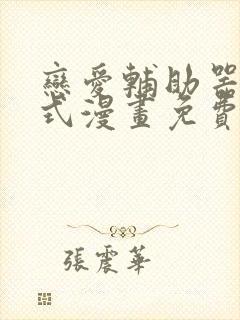 戀愛輔助器
式漫畫免費
張震華